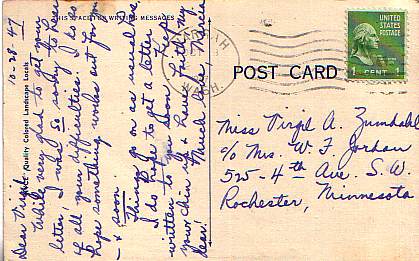 THIS SPACE FOR WRITING MESSAGES
10-28-47
Dear Virgie,
While very glad to get your
letter, I was so sorry to hear
of all your difficulties. I do so
hope something works out for you
& soon.
Things go on as usual
I do hope to get a letter
written to you soon. Keep
your chin up & have faith my
dear!
Much love, Marcia
Quality Colored Landscape Locals
WASH.
POST CARD
UNITED
STATES
POSTAGE
1 CENT 1
Miss Virgie A. Zumdahl
c/o Mrs. W. F. Jordan
525 - 4th Ave. S.W.
Rochester, Minnesota